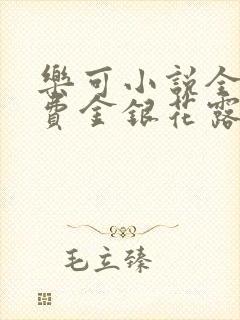 樂可小說全
費金銀花露
毛立臻